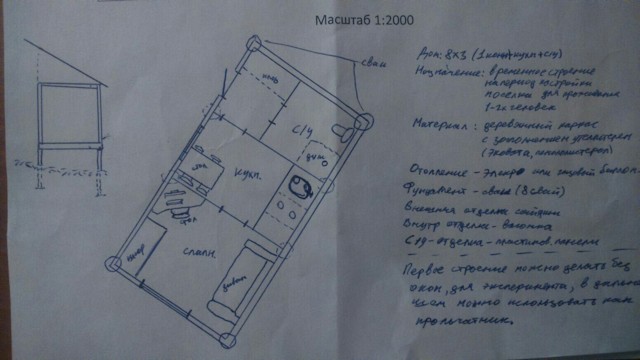 Масштаб 1:2000
сваи
С/у
душ
кухн.
спалн.
диван
Дом: 8х3 (1 комн+кухн+с/у)
Назначение: временное строение
на период постройки
поселка для проживания
1-2х человек
Материал: деревянный каркас
с заполнением утеплителем
(Эковата,
Отопление - электро или
Фундамент - сваи (8 свай)
Внешняя отделка сайдинг
Внутр отделка - вагонка
С/у - отделка - пластиков. панели
Первое строение можно делать без
окон, для эксперимента, в дальней
шем можно использовать как